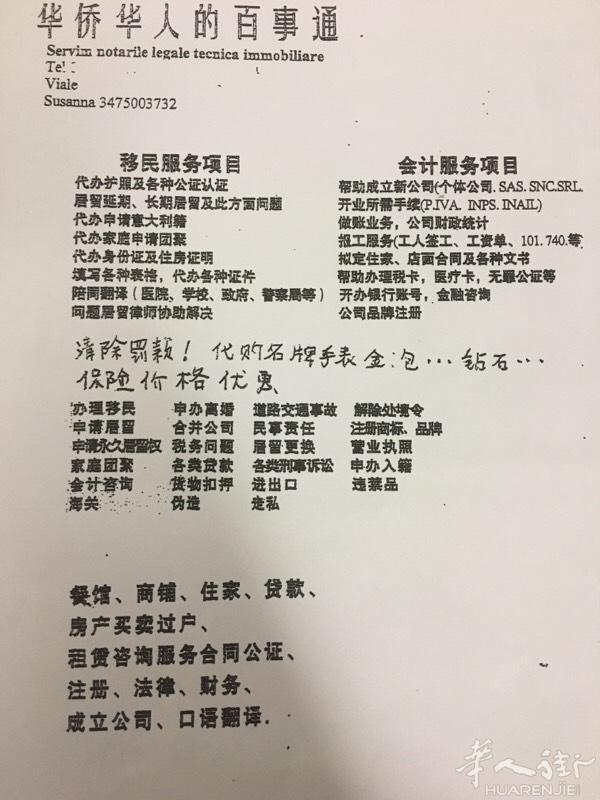 华侨华人的百事通
Servim notarile legale tecnica immobiliare
Tel
Viale
Susanna 3475003732
移民服务项目
代办护照及各种公证认证
居留延期、长期居留及此方面问题
代办申请意大利籍
代办家庭申请团聚
代办身份证及住房证明
填写各种表格，代办各种证件
陪同翻译（医院、学校、政府、警察局等）
问题居留律师协助解决
会计服务项目
帮助成立新公司(个体公司. SAS. SNC. SRL.
开业所需手续(P.IVA. INPS. INAIL)
做账业务，公司财政统计
报工服务(工人签工、工资单、101. 740. 等
拟定住家、店面合同及各种文书
帮助办理税卡，医疗卡，无罪公证等
开办银行账号，金融咨询
公司品牌注册
清除罚款！代购名牌手表金包...钻石...
保险价格优惠
办理移民 申办离婚 道路交通事故 解除处境令
申请居留 合并公司 民事责任 注册商标、品牌
申请永久居留权 税务问题 居留更换 营业执照
家庭团聚 各类贷款 各类刑事诉讼 申办入籍
会计咨询 货物扣押 进出口 违禁品
海关 伪造 走私
餐馆、商铺、住家、贷款、
房产买卖过户、
租赁咨询服务合同公证、
注册、法律、财务、
成立公司、口语翻译.
华人街
HUARENJIE